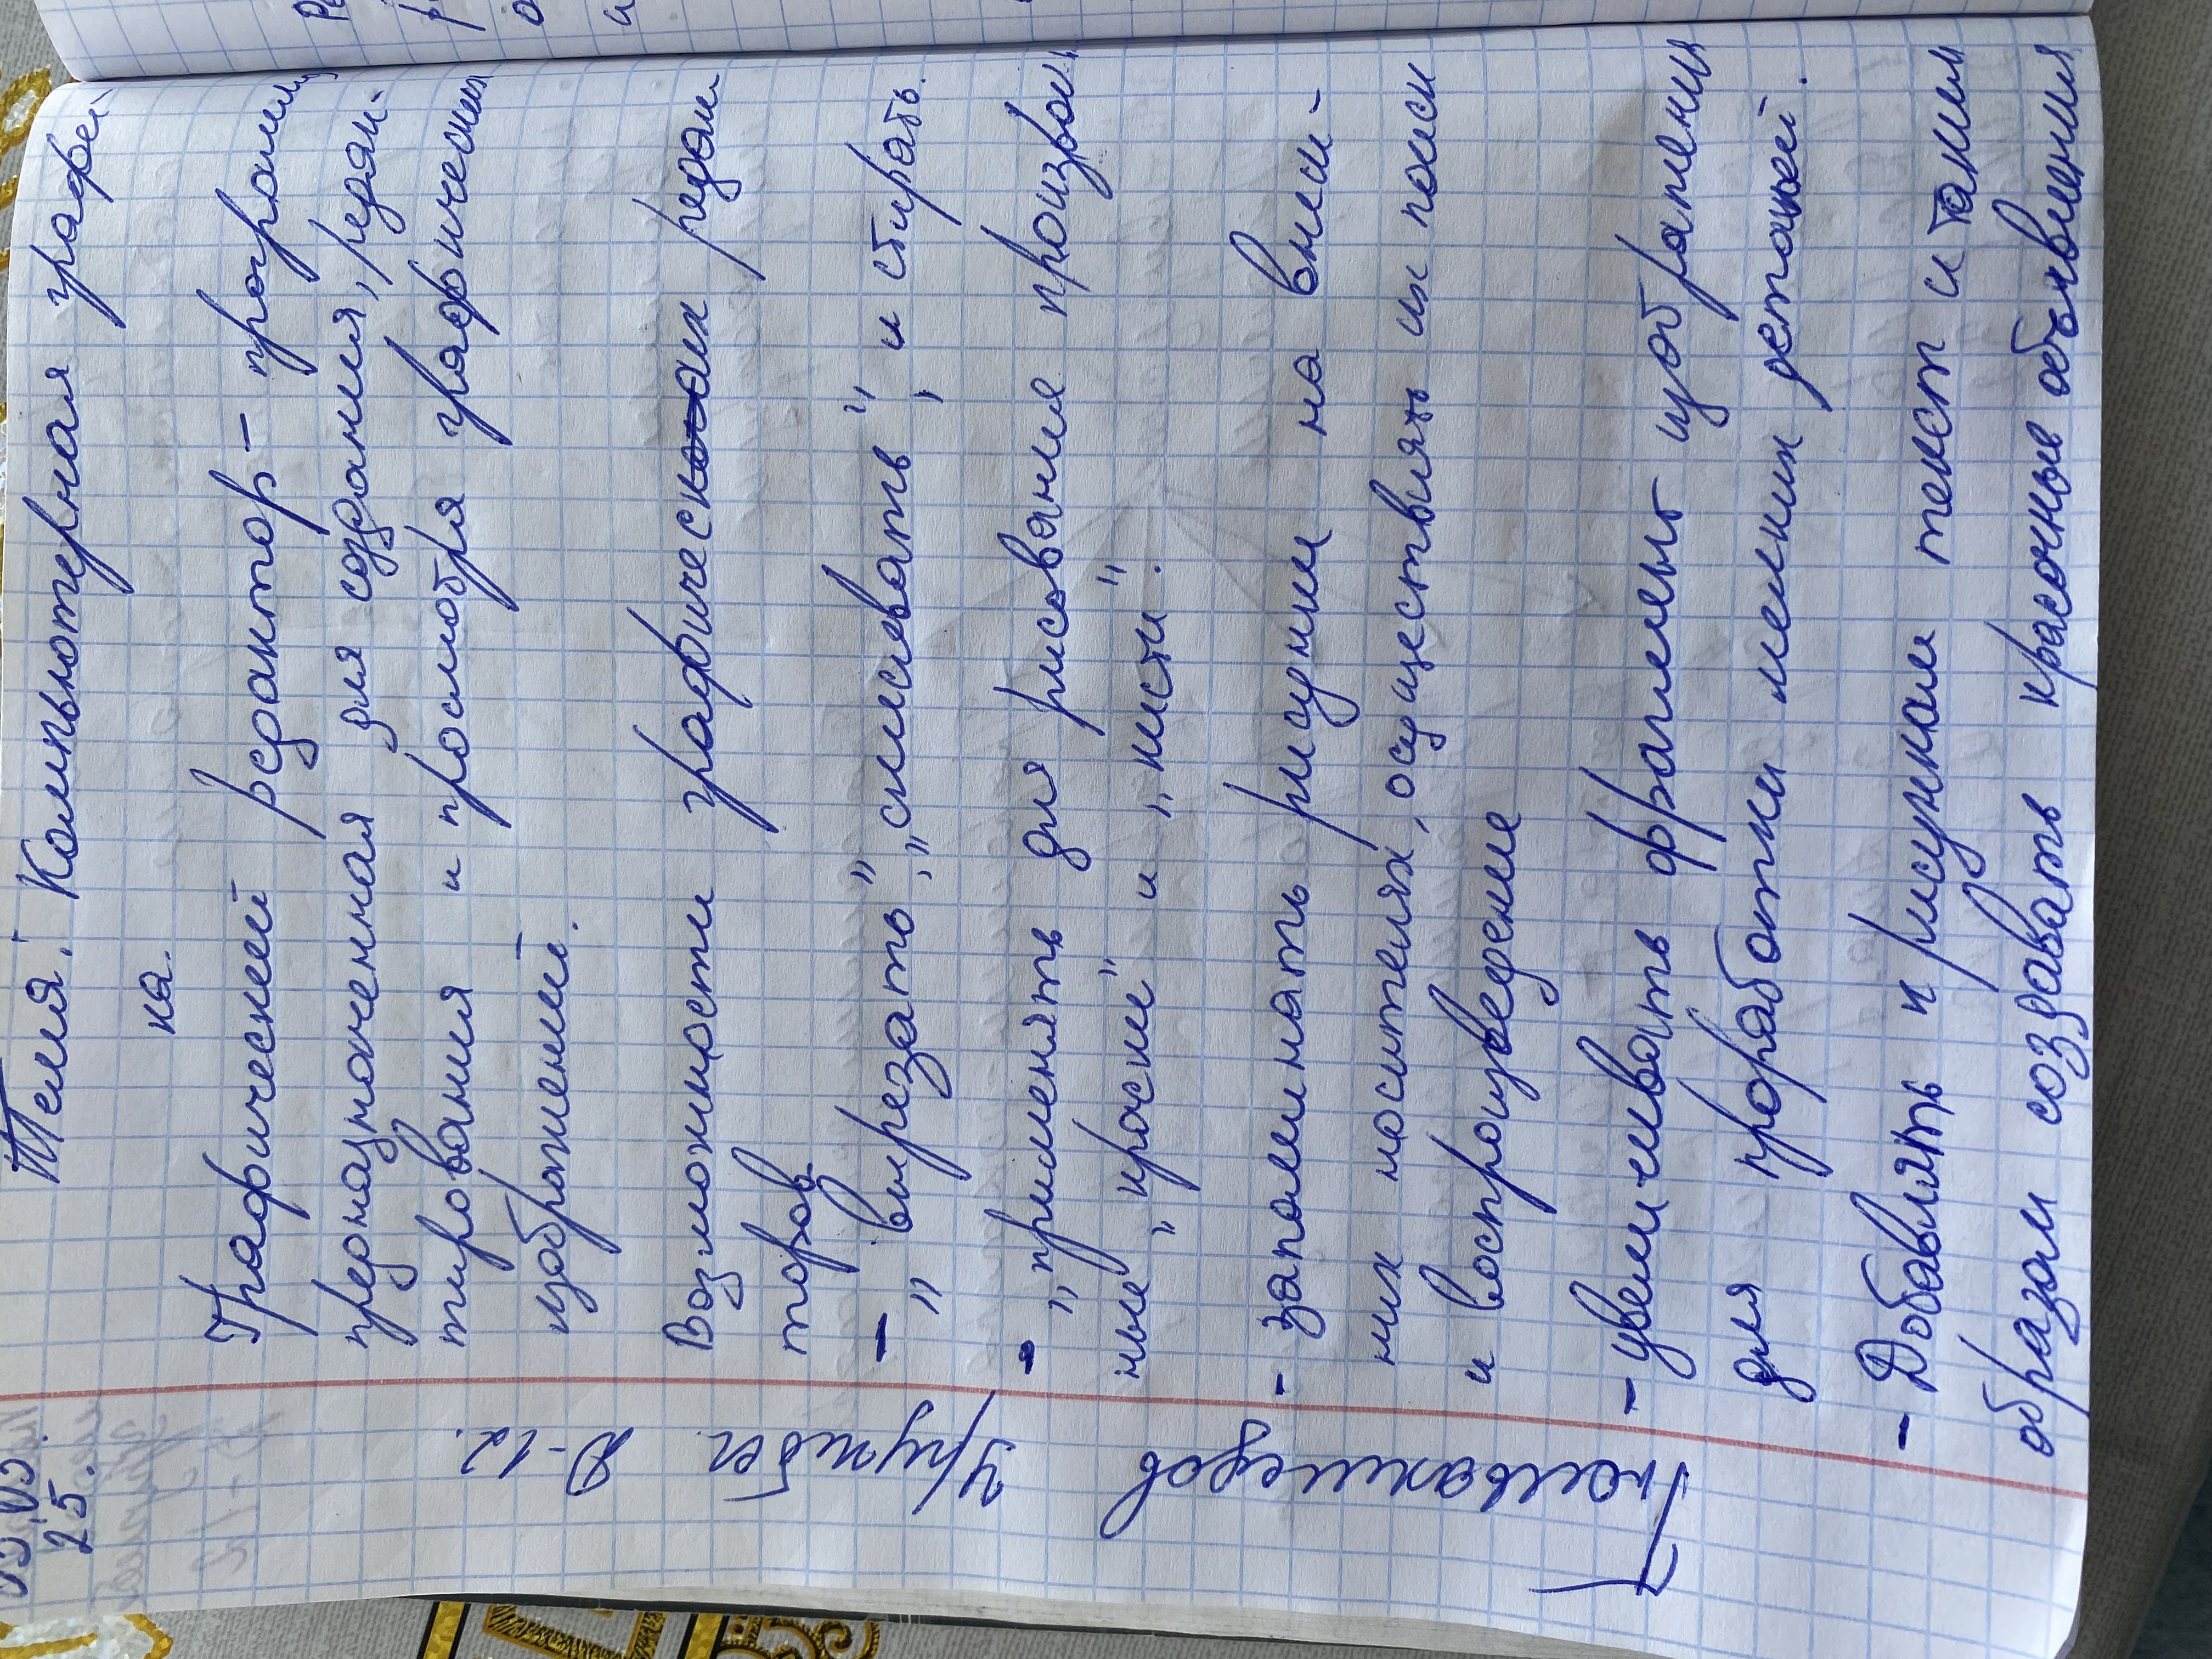 25.
Тема: Компьютерная графи-
ка.
Графический редактор - програми
предназначенная для создания, редак-
тирования и просмобря графических
изображений.
Возможности графических редак
торов
- "вырезать", "списывать", и стирать.
- "применять для рисования произволь
ные "краски" и "кисти".
- запоминать рисунки на внеш-
них носителях, осуществлять их поиск
и воспроизведение
- увеличивать фрагмент изображения
для проработки мелких деталей.
- Добавлять к рисункам текст и таким
образом создавать красочные объявления
Д-12.